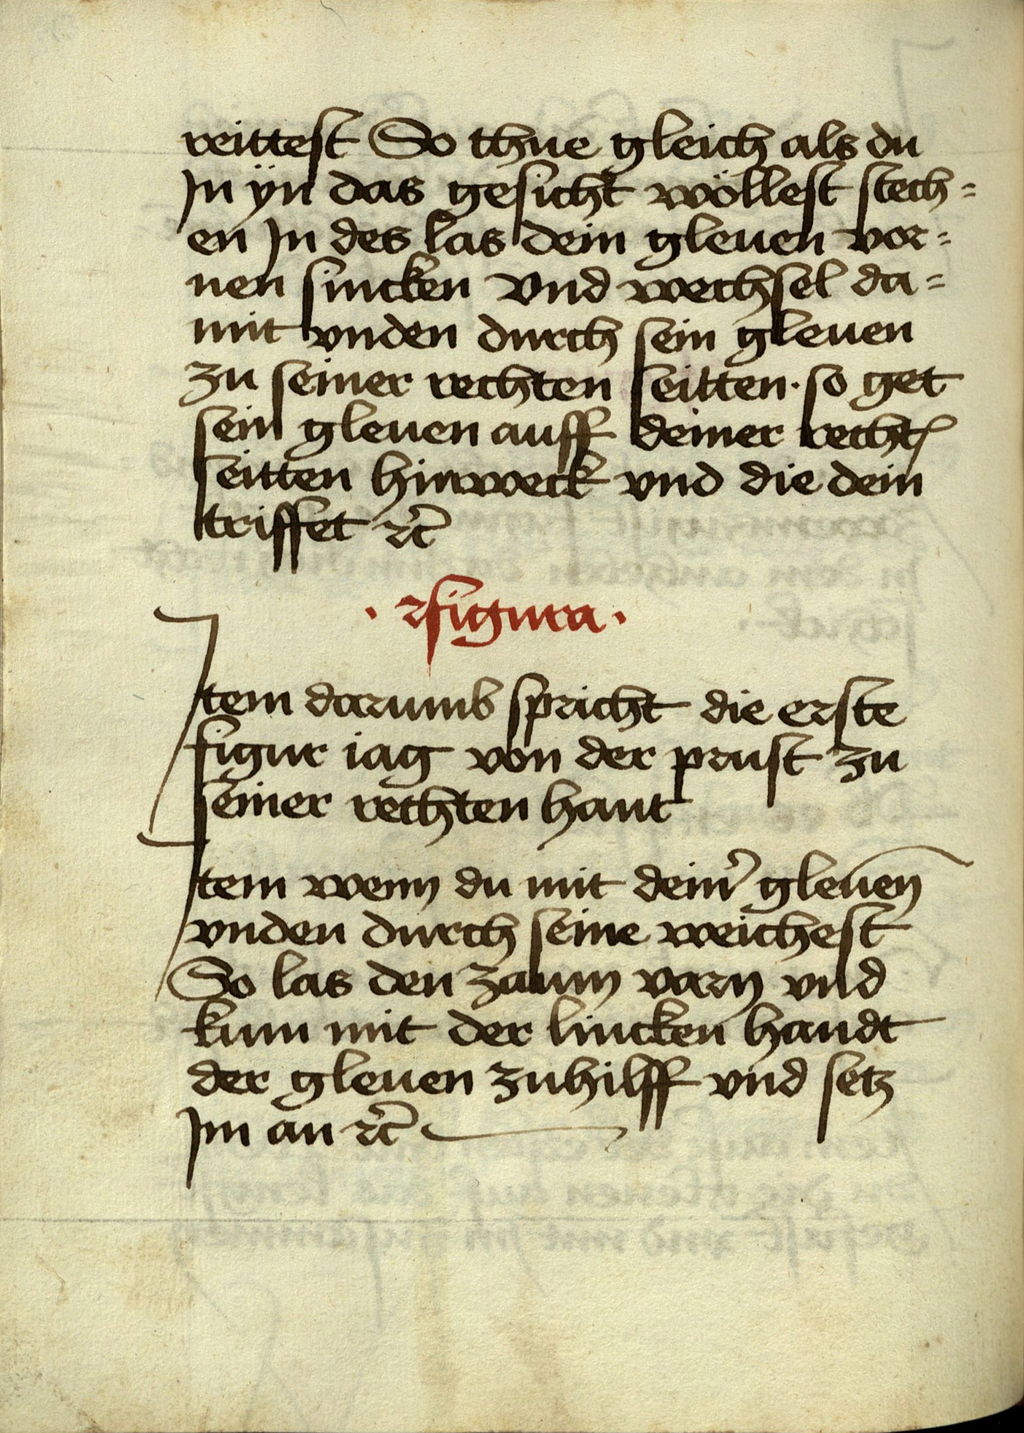 reittest So thue gleich als du
Jn ÿn das gesicht wöllest stech=
en Jn des las dein gleuen vor=
nen sincken vnd wechsel da=
mit vnden durch sein gleuen
zu seiner rechten seitten · so get
sein gleuen auff deiner recht
seitten hinweck vnd die dein
triffet ꝛc̃
· figura ·
Jtem darumb spricht die erste
figur iag von der prust zu
seiner rechten hant
Jtem wenn du mit dein̕ gleuen̄
vnden durch seine weichest
So las den zaum varn vnd
kum mit der lincken handt
der gleuen zuhilff vnd setz
Jm an ꝛc̃